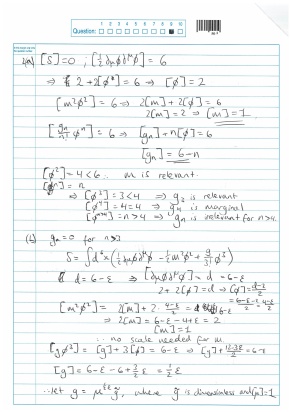 1 2 3 4 5 6 7 8 9 10
Question:
4(a) [S]=0 ; [½ ∂μφ∂^μφ] = 6
⇒ 2+2[φ] = 6 ⇒ [φ]=2
[m²φ²] = 6 ⇒ 2[m] + 2[φ] = 6
2[m] = 2 ⇒ [m] = 1.
[gₙ/n! φⁿ] = 6 ⇒ [gₙ] + n[φ] = 6
[gₙ] = 6-n
[φ²] = 4 < 6 ∴ m is relevant.
[φⁿ] = n
⇒ [φ³] = 3 < 4 ⇒ g₃ is relevant
[φ⁴] = 4 = 4 ⇒ g₄ is marginal
= n > 4 ⇒ gₙ is irrelevant for n>4.
(b) gₙ=0 for n>3
S = ∫dᵈx (½ ∂μφ∂^μφ - ½m²φ² + g/3! φ³)
d = 6-ε ⇒ [∂μφ∂^μφ] = d = 6-ε
2 + 2[φ] = d ⇒ [φ] = d-2/2
= 6-ε-2/2 = 4-ε/2
[m²φ²] = 2[m] + 2· 4-ε/2 = 6-ε
⇒ 2[m] = 6-ε-4+ε = 2
[m]=1
∴ no scale needed for m
[gφ³] = [g]+3[φ] = 6-ε ⇒ [g] + 12-3ε/2 = 6-ε
[g] = 6-ε-6+3/2 ε = ½ε
∴ let g = μ^½ε g̃, where g̃ is dimensionless and [μ]=1